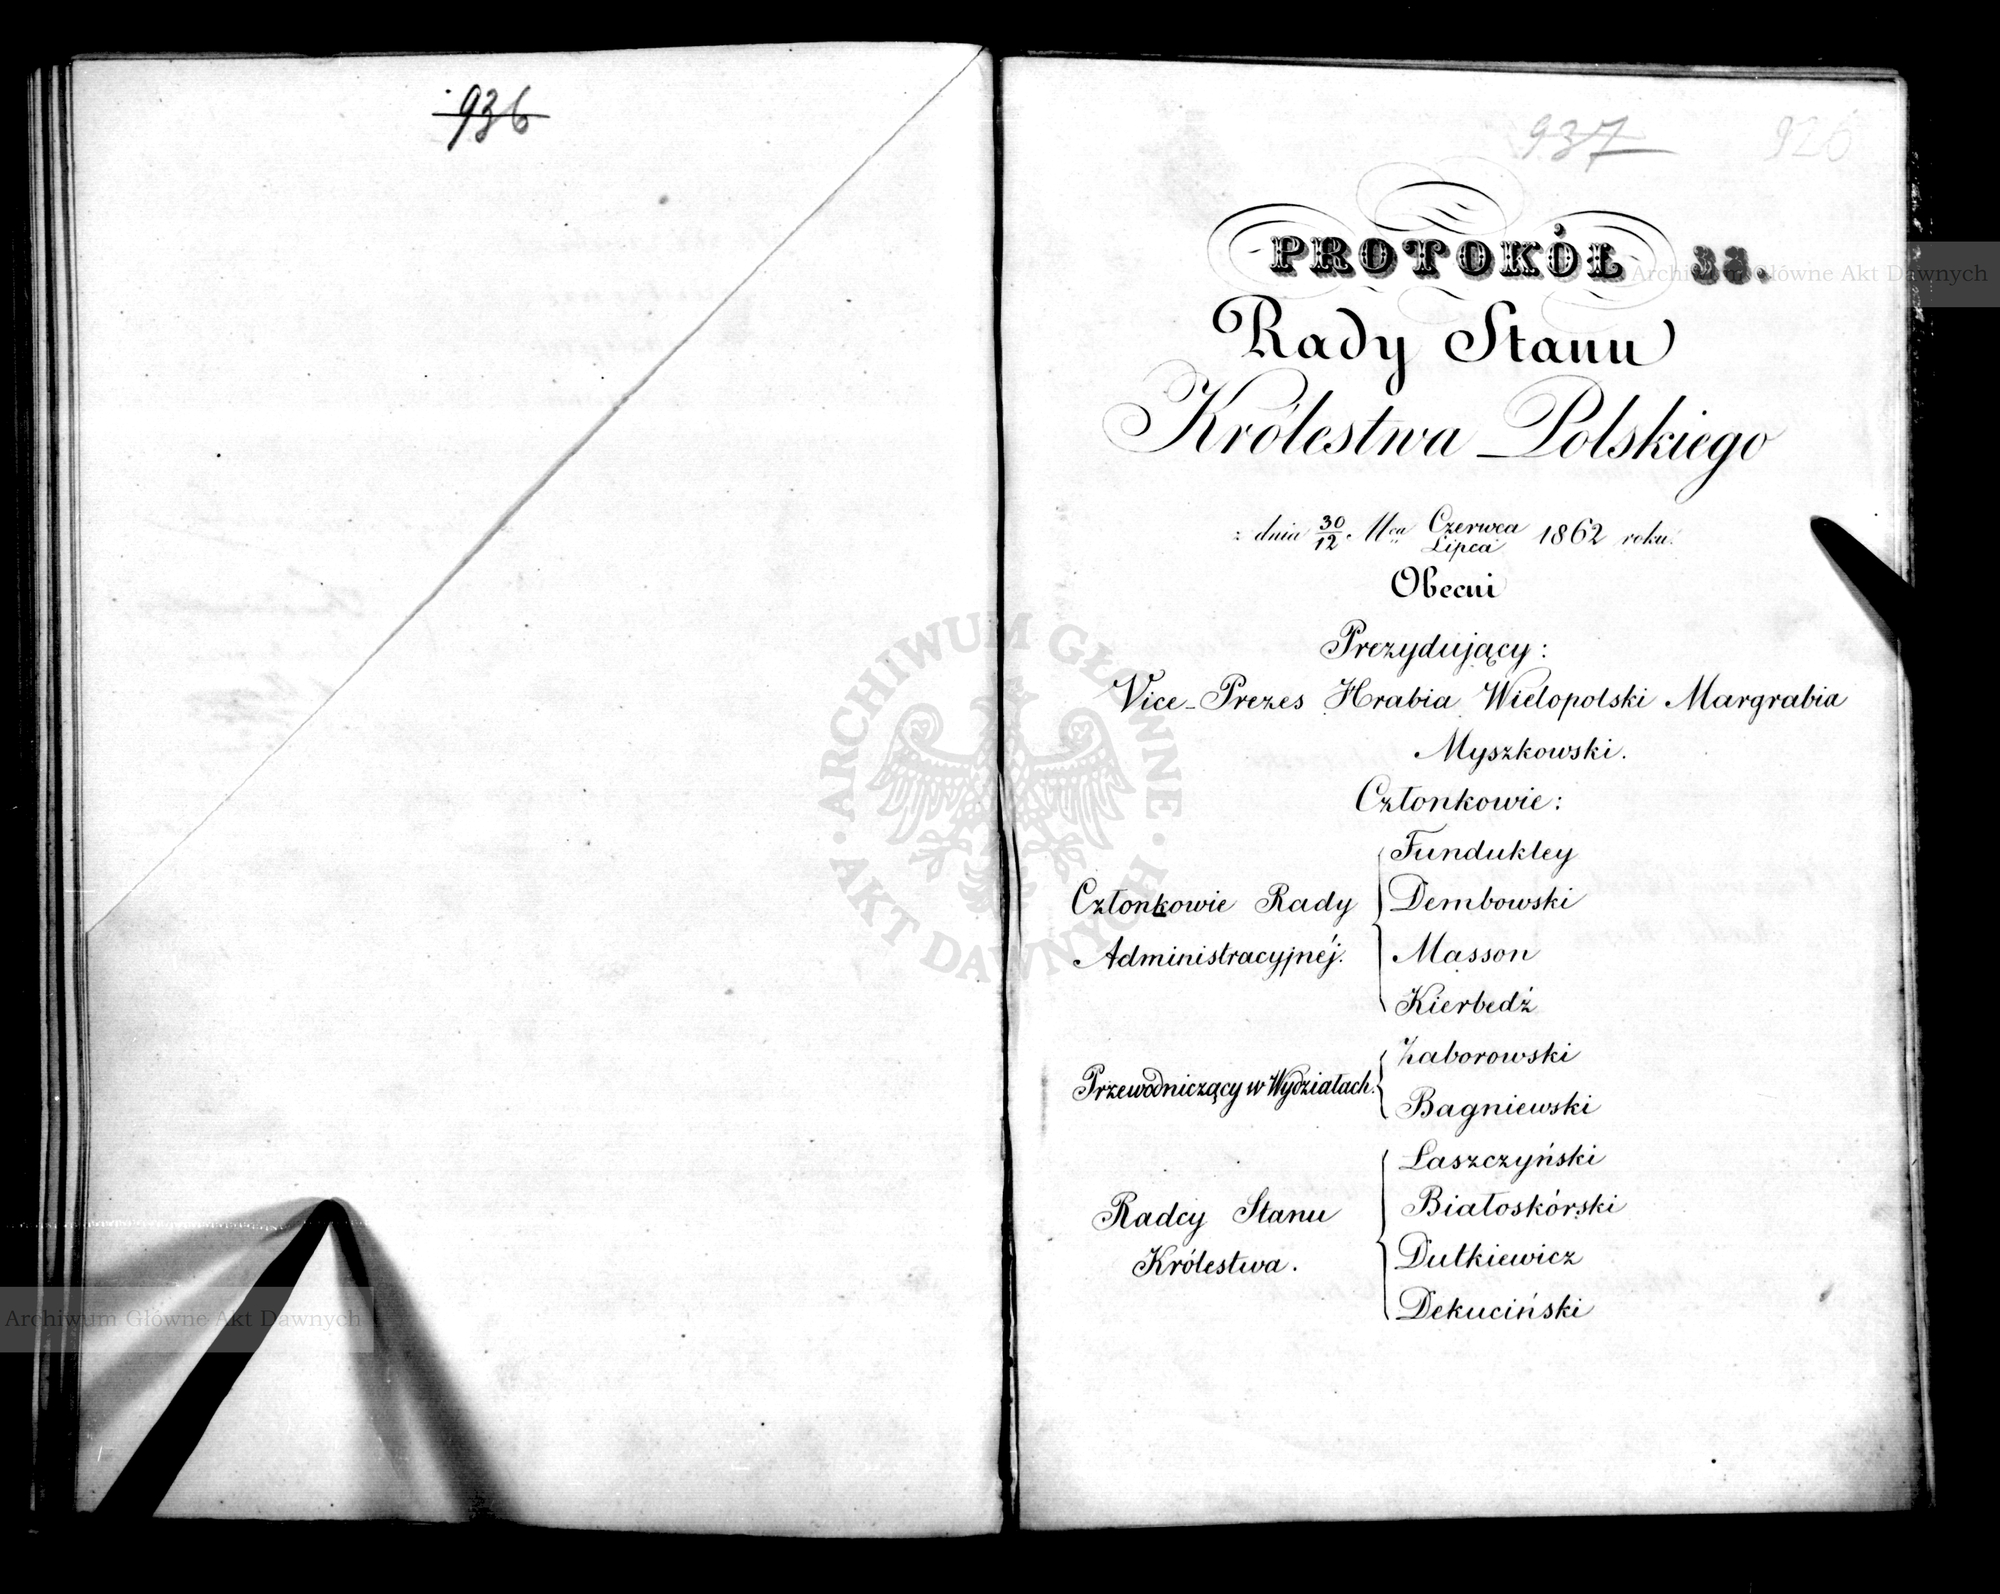 936
937 926
PROTOKÓŁ 33.
Rady Stanu
Królestwa Polskiego
z dnia 30/12 Mca Czerwca/Lipca 1862 roku.
Obecni
Prezydujący:
Vice-Prezes Hrabia Wielopolski Margrabia
Myszkowski.
Członkowie:
Członkowie Rady
Administracyjnéj.
Fundukley
Dembowski
Masson
Kierbedź
Przewodniczący w Wydziałach.
Zaborowski
Bagniewski
Radcy Stanu
Królestwa.
Laszczyński
Białoskórski
Dutkiewicz
Dekuciński
ARCHIWUM GŁÓWNE
AKT DAWNYCH
Archiwum Główne Akt Dawnych
Archiwum Główne Akt Dawnych